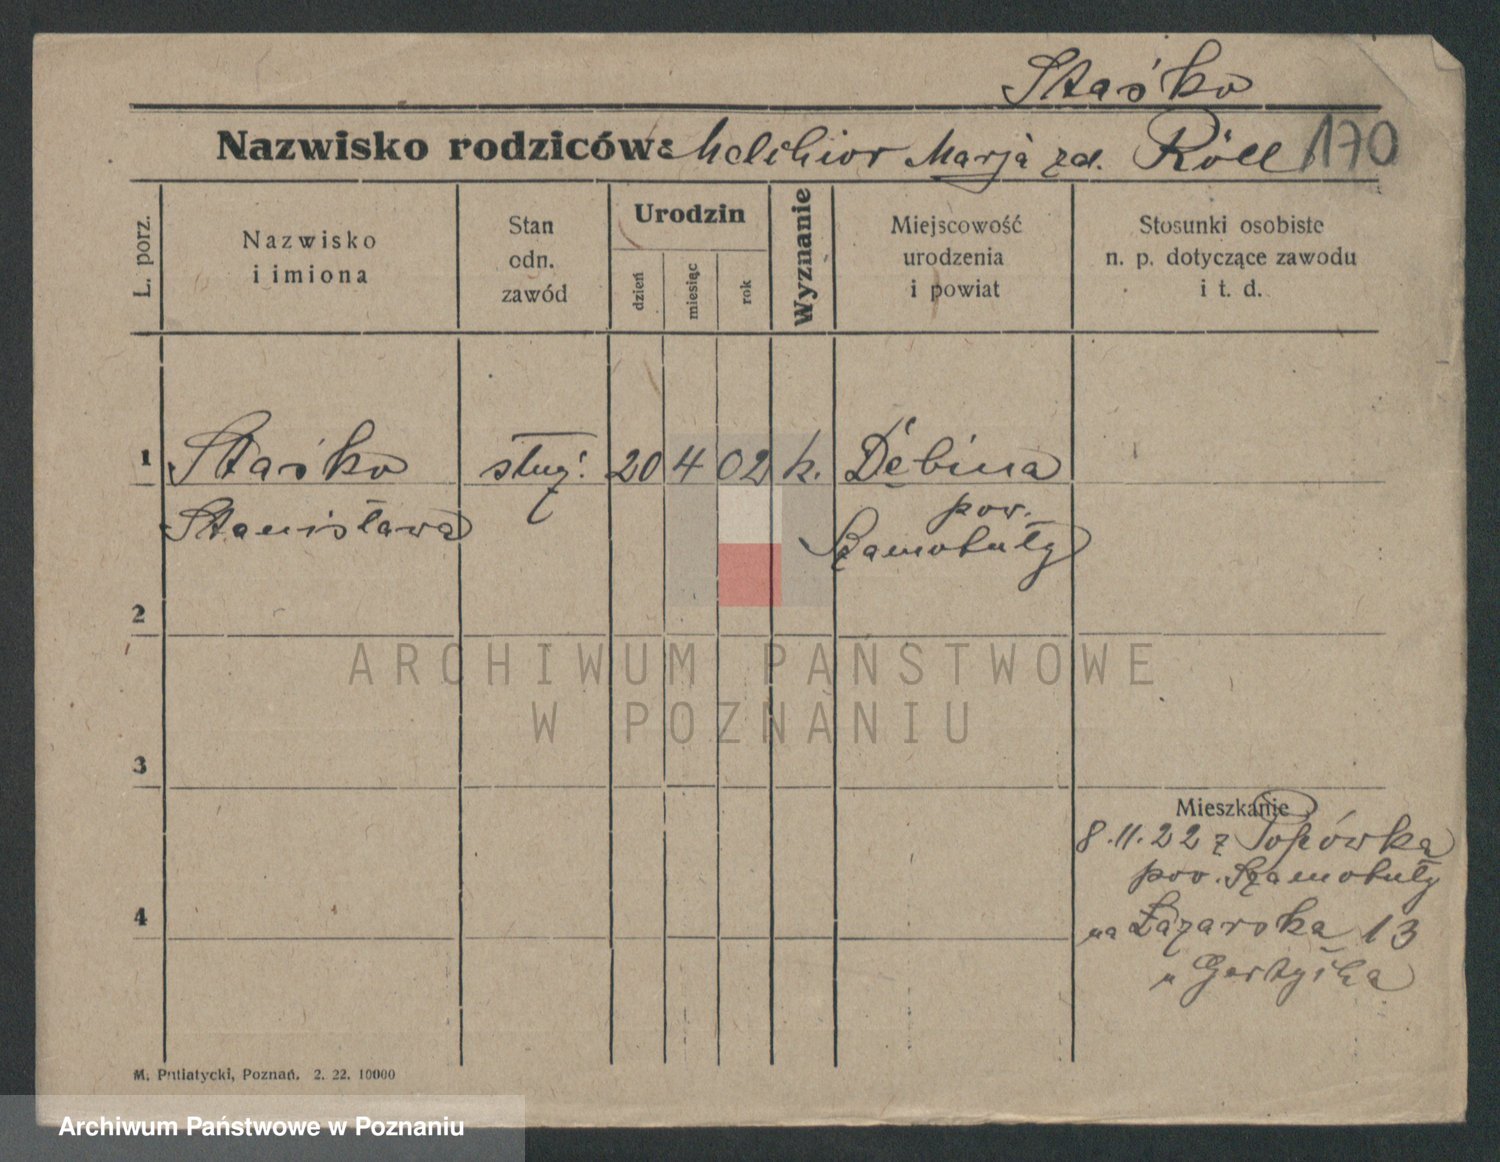 Staśko
Nazwisko rodziców: Melchior Marja zd. Röll 170
L. porz.
Nazwisko
i imiona
Stan
odn.
zawód
Urodzin
dzień
miesiąc
rok
Wyznanie
Miejscowość
urodzenia
i powiat
Stosunki osobiste
n. p. dotyczące zawodu
i t. d.
1 Staśko służ. 20 4 02 k. Dębina
Stanisława pow.
Szamotuły
2
ARCHIWUM PAŃSTWOWE
W POZNANIU
3
Mieszkanie
8.11.22 z Popówka
pow. Szamotuły
4
na Łazarska 13
u
M. Putiatycki, Poznań. 2. 22. 10000
Archiwum Państwowe w Poznaniu